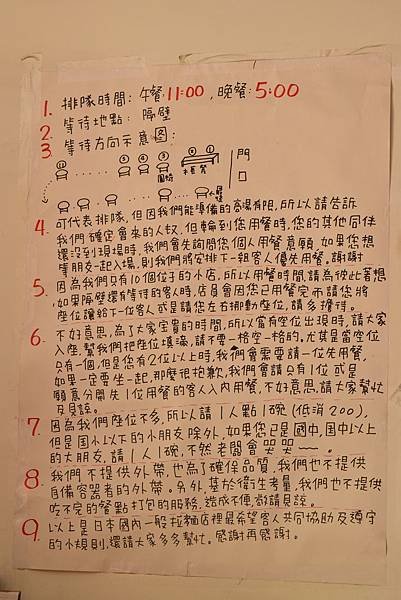 1. 排隊時間: 午餐:11:00, 晚餐:5:00
2. 等待地點: 隔壁
3. 等待方向示意圖:
⑤ ④ ③ ② ①
門
口
4. 可代表排隊,但因我們能準備的客場有限,所以請告訴
我們確定會來的人數,但輪到您用餐時,您的其他同伴
還沒到現場時,我們會先詢問您個人用餐意願,如果您想
等朋友一起入場,則我們將安排下一組客人優先用餐,謝謝
5. 因為我們只有10個位子的小店,所以用餐時間,請為彼此著想
,如果隔壁還有等待的客人時,店員會因您已用餐完而請您將
座位讓給下一位客人或是請您左右挪動座位,請多擔待。
6. 不好意思,為了大家寶貴的時間,所以當有空位出現時,請大家
入座,幫我們把座位填滿,請不要一格空一格的,尤其是當空位
只有一個,但是您有2位以上時,我們會需要請一位先用餐,
如果一定要坐一起,那麼很抱歉,我們會請只有1位或是
願意分開先1位用餐的客人入內用餐,不好意思,請大家幫忙
及見諒。
7. 因為我們座位不多,所以請1人點1碗(低消200),
但是国小以下的小朋友除外,如果您已是國中,国中以上
的大朋友,請1人1碗,不然老闆會哭哭~~。
8. 我們不提供外帶,也為了確保品質,我們也不提供
自備容器者的外帶。另外,基於衛生考量,我們也不提供
吃不完的餐點打包的服務,造成不便,尚請見諒。
9. 以上是日本國內一般拉麵店裡最希望客人共同協助及遵守
的小規則,還請大家多多幫忙。感謝再感謝。